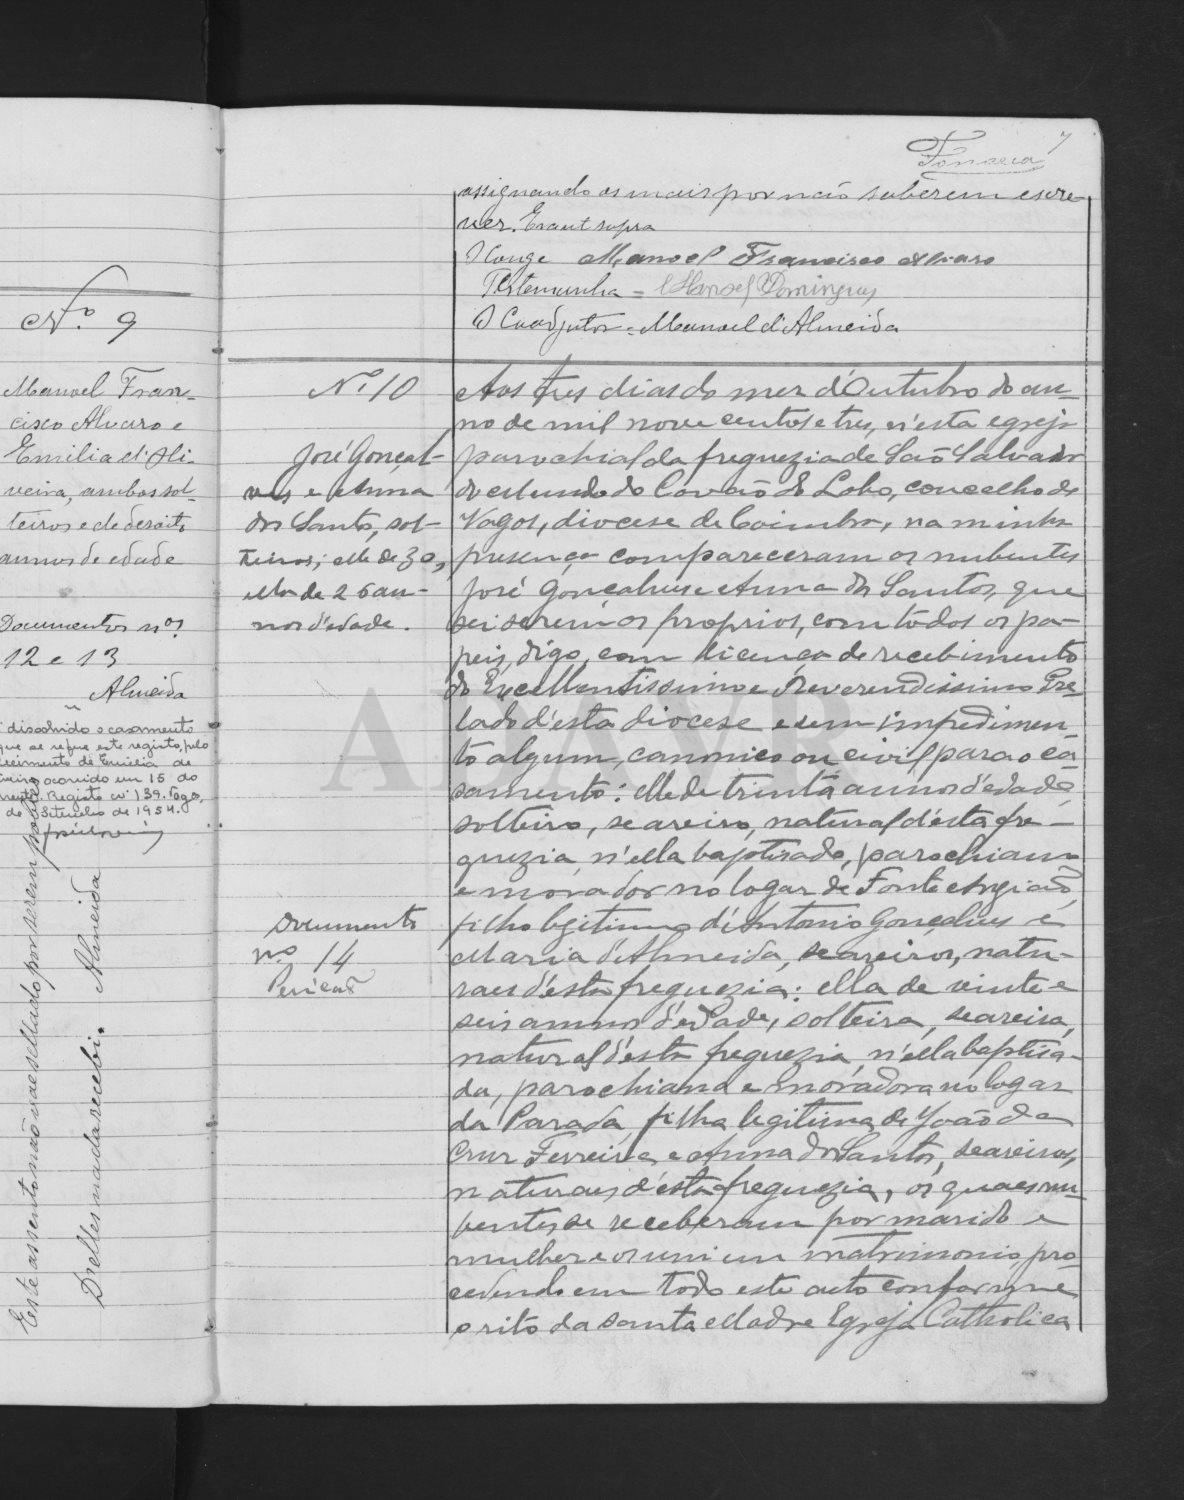 Fonseca
7
assignando os mais por não saberem escre-
ver. Era ut supra
O Conge Manoel Francisco Alvaro
Testemunha = Manoel Domingues
O Coadjutor = Manuel d'Almeida
Nº 9
Manoel Fran-
cisco Alvaro e
Emilia d'Oli-
veira, ambos sol-
teiros e de dezoito
annos de edade
Documentos nos
12 e 13
Almeida
dissolvido o casamento
que se refere este registo, pelo
de Emilia de
ocorrido em 15 do
Registo nº 139. Vagos,
de Setembro de 1954.
Este assento não vae sellado por serem pobres
D'elles nada recebi. Almeida
Nº 10
José Gonçal-
ves e Anna
dos Santos, sol-
teiros; elle de 30,
ella de 26 an-
nos d'edade.
Documento
nº 14
Aos tres dias do mez d'Outubro do an-
no de mil nove centos e tres, n'esta egreja
parochial da freguezia de São Salvador
do Covão do Lobo, concelho de
Vagos, diocese de Coimbra, na minha
presença compareceram os nubentes
José Gonçalves e Anna dos Santos, que
sei serem os proprios, com todos os pa-
peis, digo, com licença de recebimento
do Excellentissimo e Reverendissimo Pre-
lado d'esta diocese e sem impedimen-
to algum, canonico ou civil para o ca-
samento: elle de trinta annos d'edade,
solteiro, seareiro, natural d'esta fre-
guezia, n'ella baptisado, parochiano
e morador no logar de Fonte Angião,
filho legitimo d'Antonio Gonçalves e
Maria d'Almeida, seareiros, natu-
raes d'esta freguezia: ella de vinte e
seis annos d'edade, solteira, seareira,
natural d'esta freguezia, n'ella baptisa-
da, parochiana e moradora no logar
da Parada, filha legitima de João da
Cruz Ferreira e Anna dos Santos, seareiros,
naturaes d'esta freguezia, os quaes nu-
bentes se receberam por marido e
mulher e os uni em matrimonio, pro-
cedendo em todo este acto conforme
o rito da Santa Madre Egreja Catholica
ADAVR